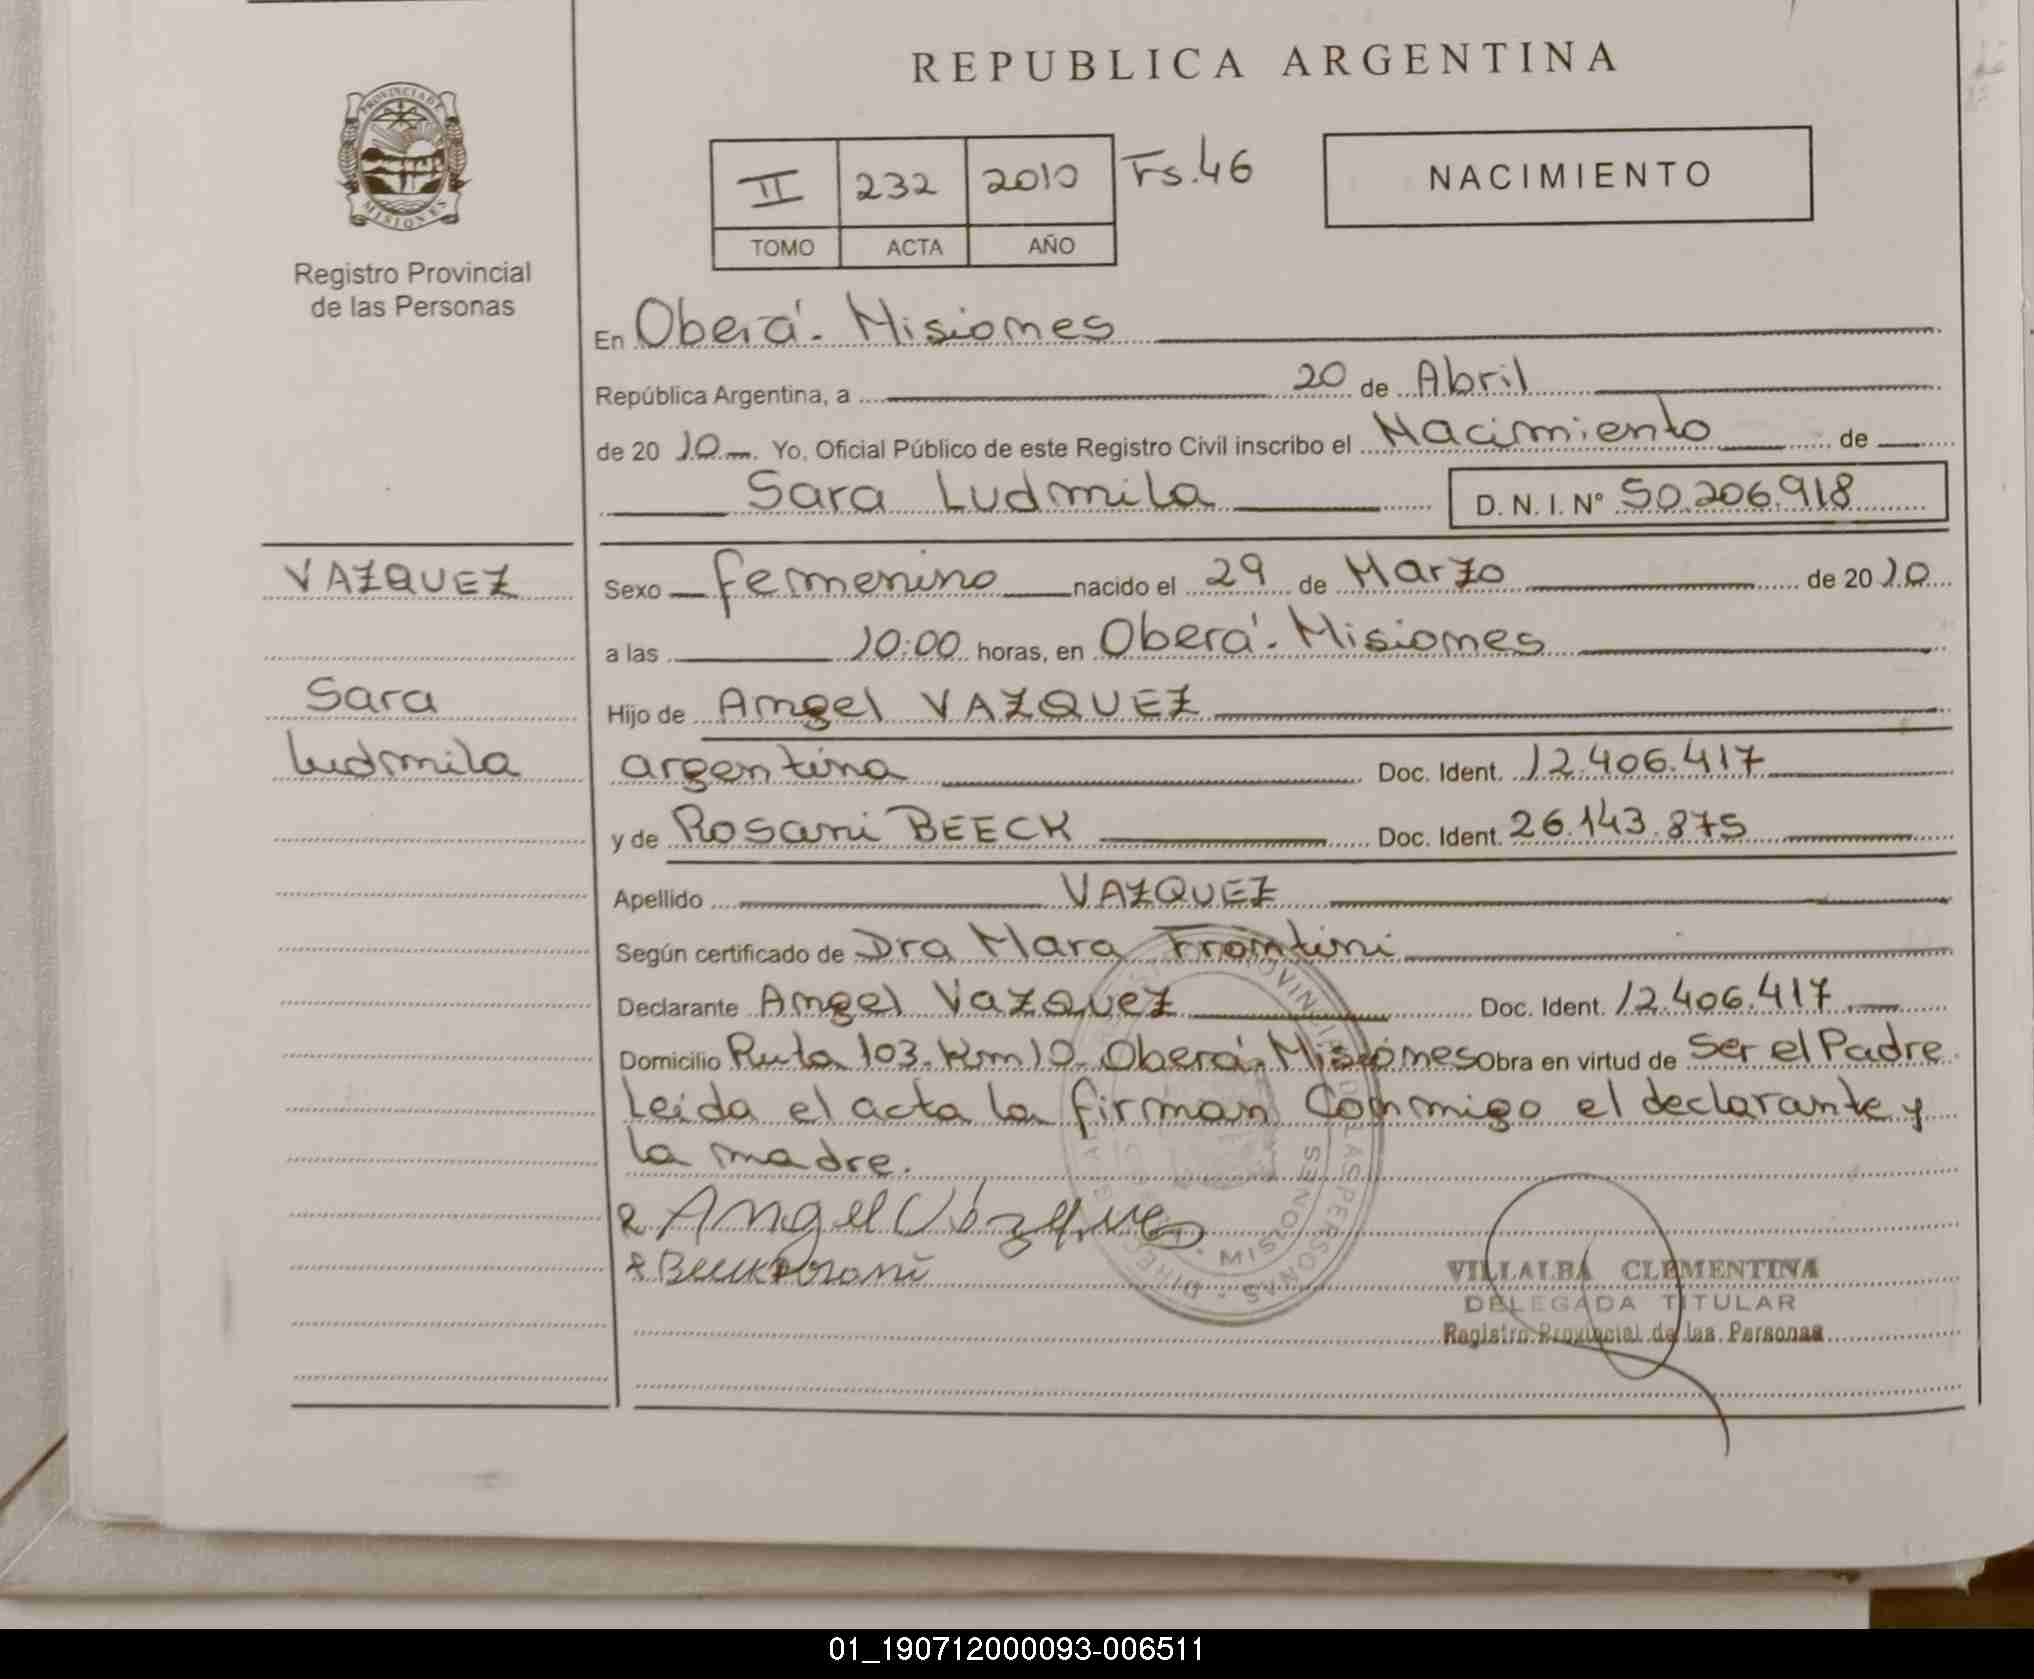 REPUBLICA ARGENTINA
PROVINCIA DE MISIONES
Registro Provincial
de las Personas
II 232 2010 Fs. 46
TOMO ACTA AÑO
NACIMIENTO
En Oberá - Misiones
República Argentina, a 20 de Abril
de 20 10 Yo, Oficial Público de este Registro Civil inscribo el Nacimiento de
Sara Ludmila D. N. I. N° 50.206.918
VAZQUEZ
Sara
Ludmila
Sexo femenino nacido el 29 de Marzo de 20 10
a las 10:00 horas, en Oberá - Misiones
Hijo de Angel VAZQUEZ
argentina Doc. Ident. 12.406.417
y de Rosani BEECK Doc. Ident. 26.143.875
Apellido VAZQUEZ
Según certificado de Dra Mara Frontini
Declarante Angel Vazquez Doc. Ident. 12.406.417
Domicilio Ruta 103. Km 10. Oberá - Misiones Obra en virtud de Ser el Padre
Leida el acta la firman Conmigo el declarante y
la madre.
Angel Vázquez
Beeck Rosani
VILLALBA CLEMENTINA
DELEGADA TITULAR
Registro Provincial de las Personas
MISIONES
01_190712000093-006511